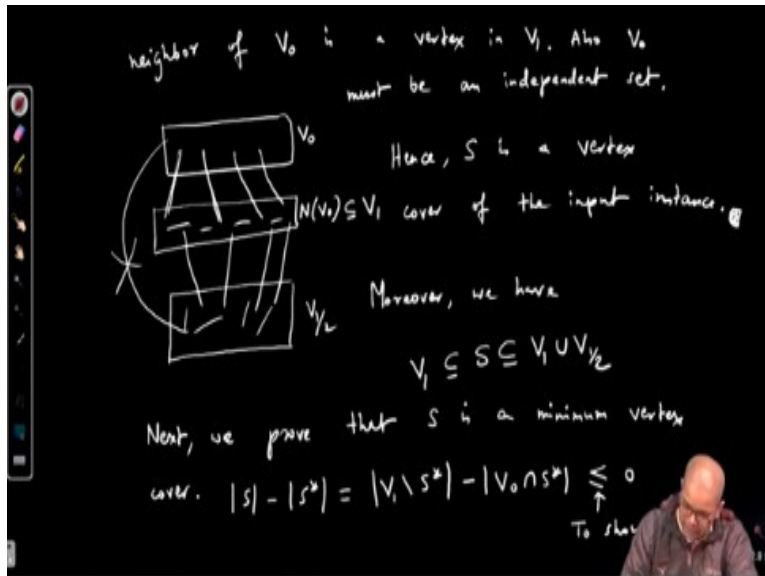 neighbor of V₀ is a vertex in V₁. Also V₀
must be an independent set.
V₀
Hence, S is a vertex
N(V₀) ⊆ V₁ cover of the input instance.
V₁/₂
Moreover, we have
V₁ ⊆ S ⊆ V₁ ∪ V₁/₂
Next, we prove that S is a minimum vertex
cover. |S| - |S*| = |V₁ \ S*| - |V₀ ∩ S*| ≤ 0
↑
To show